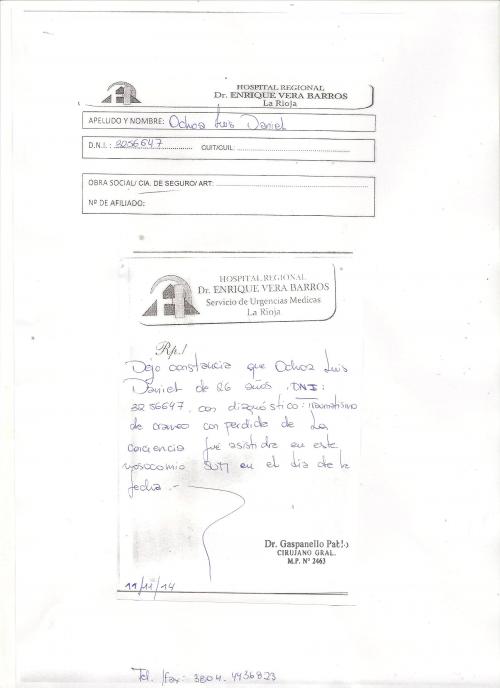 HOSPITAL REGIONAL
Dr. ENRIQUE VERA BARROS
La Rioja
APELLIDO Y NOMBRE: Ochoa Luis Daniel
D.N.I.: 3256647 CUIT/CUIL:
OBRA SOCIAL/ CIA. DE SEGURO/ ART:
Nº DE AFILIADO:
HOSPITAL REGIONAL
Dr. ENRIQUE VERA BARROS
Servicio de Urgencias Medicas
La Rioja
Rp./
Dejo constancia que Ochoa Luis
Daniel de 26 años, DNI:
3256647, con diagnóstico: traumatismo
de craneo con perdida de la
conciencia fué asistido en este
nosocomio en el dia de la
fecha.-
Dr. Gaspanello Pablo
CIRUJANO GRAL.
M.P. Nº 2463
11/11/14
Tel. /fax: 3804-4436823